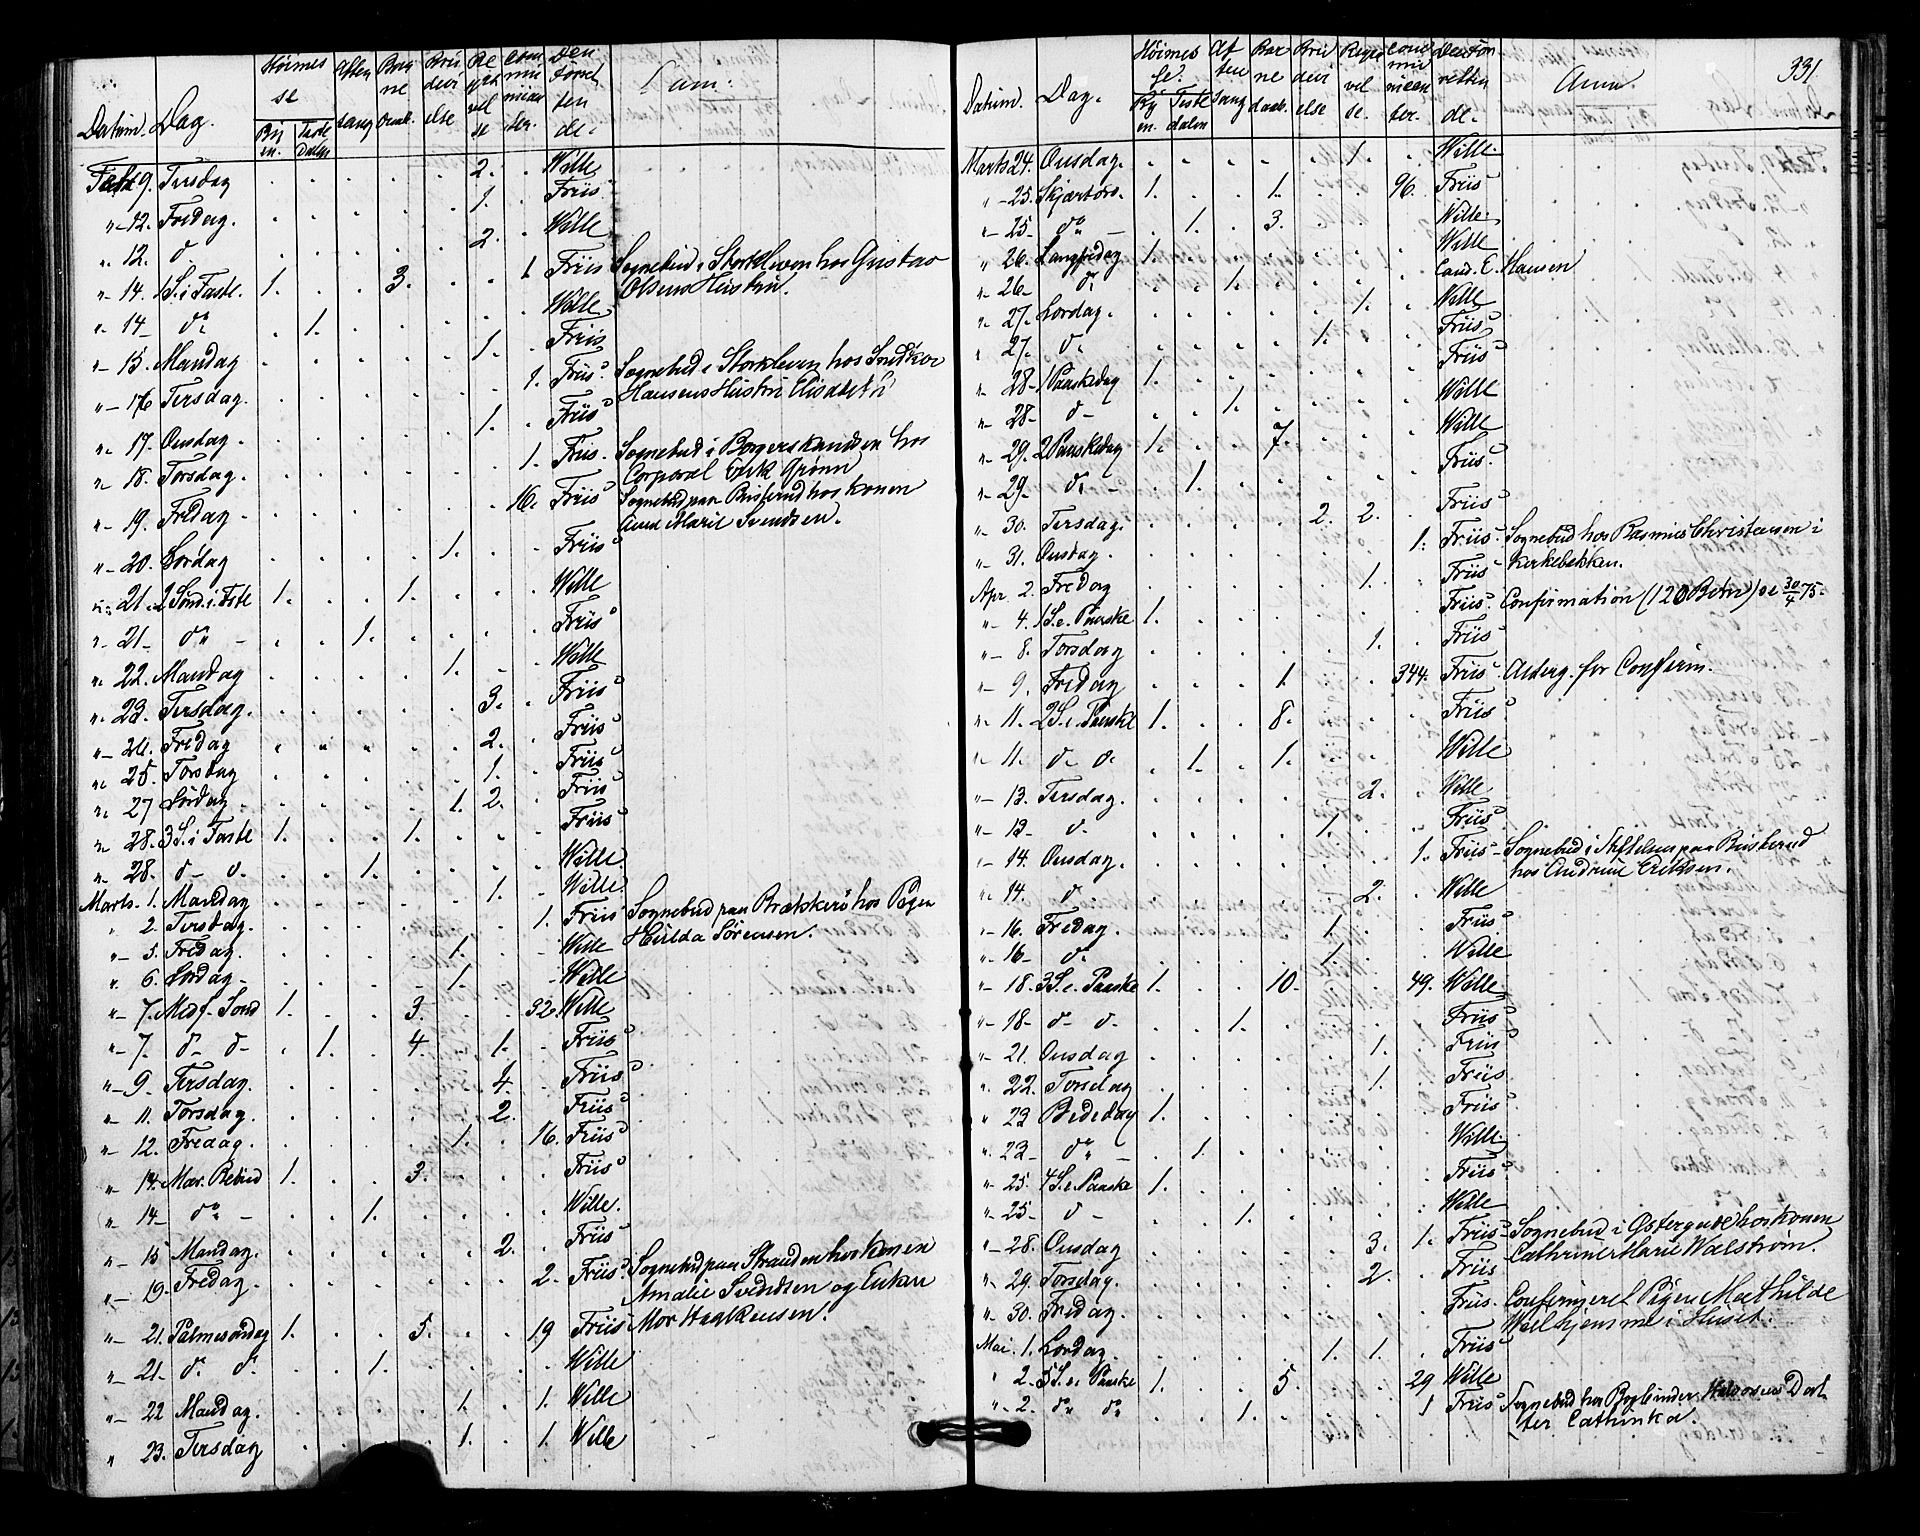 331
Datum. Dag. Høimesse Byen. Tistedalen Aftensang Barnedaab. Brudevielse Begravelse Communicanter. Den Forrettende. Anm:
Feb. 9. Tirsdag . . . . . 2. . Wille
"-12. Fredag. . . . . . 1. . Friis
" 12. d . . . . . 2. . Wille
"-14. 1 S. i Faste. 1. . . 3. . . 1 Friis Sognebud i Storkleven hos Gustav
Olsens Hustru.
" 14- do . 1. . . . . . Wille
"-15. Mandag . . . . . 1. . Friis
"-16 Tirsdag. . . . . . . 1. Friis. Sognebud i Storkleven hos
Hansens Hustru Elisabeth
" 17. Onsdag. . . . . . 1. . Friis
" 18. Torsdag. . . . . . . 1. Friis. Sognebud i Borgerskandsen hos
Corporal Erik Grønn
"-19. Fredag . . . . . . 16. Friis Sognebud paa Riserud hos Konen
Anne Marie Svendsen.
"-20. Lørdag . . . . 1. . . Friis
" 21. 2 Sønd. i Fste 1. . . 1. . . . Wille
" 21- do - . . 1. . . . . Friis
" 22. Mandag . . . . 1. . . Wille
" 23. Tirsdag. . . . . . 3. . Friis
"-24. Fredag . . . . . 2. . Friis
" 25. Torsdag . . . . . 1. . Friis
" 27 Lørdag . . . . 1. 2. . Friis
" 28. 3 S. i Faste 1. . . 1. . . . Friis
" 28. d- d. . . 1. . . . . Wille
Marts. 1. Mandag . . . . . 1. . Wille.
" 2. Tirsdag. . . . . . . 1. Friis Sognebud paa Brækkerø hos Pigen
Hulda Sørensen.
"-5. Fredag. . . . . 1. . . Wille
" 6. Lørdag- . . . . 1. . . Wille
"-7. Midf. Sønd 1. . . 3. . . 32. Wille
"-7. d- d- . 1. . 4. . 1. . Friis
"-9. Tirsdag. . . . . . 4. . Friis
" 11. Torsdag. . . . . . 2. . Friis
"-12. Fredag. . . . . 1. . 16. Friis
" 14. Mar. Bebud 1. . . 3. . . . Friis
"-14- do - . . 1. . . . . Wille.
"-15 Mandag. . . . . . 2. . Friis
"-19. Fredag. . . . . . . 2. Friis. Sognebud paa Stranden hos Konen
Amalie Svendsen og Enken
"-21. Palmesøndag 1. . . 5. . . 19 Friis Mor Haakensen.
"-21. do do . . 1. . . . . Wille
"-22 Mandag. . . . . 1. . 1. Wille
" 23. Tirsdag . . . . 1. . 1. Wille
Datum. Dag. Høimesse. Byen. Tistedalen Aftensang Barnedaab. Brudevielse Begravelse. Communicenter. Den Forrettende. Anm.
Marts 24. Onsdag. . . . . . 1. . Wille.
"-25. Skjærtors. 1. . . 1. . . 96. Friis
"-25- do - . 1. . 3. . . . Wille.
" 26. Langfredag 1. . . . . . . Wille
"-26- do . . 1. . . . . Cand. E. Hansen
" 27. Lørdag. . . . . . 1. . Wille
" 27. d. . . . . 1. . . Friis
"-28- 1 Paaskedag 1. . . . . . . Friis
"-28- d- . . 1. . . . . Wille
"-29. 2 Paaskedag 1. . . 7. . . . Wille
"-29- do - . 1. . . . . . Friis.
"-30. Tirsdag. . . . . 2. 2. . Friis
" 31. Onsdag. . . . . . . 1. Friis. Sognebud hos Rasmus Christensen i
Kirkebakken.
Apr. 2. Fredag . . . . . 1. . Friis
"-4. 1 S. e. Paaske 1. . . . . . . Friis. Confirmation (120 Børn) se 30/4 75.
"-8. Torsdag . . . . . 1. . Friis
"-9. Fredag . . . 1. . . 344. Friis. Alterg. for Confirm.
" 11. 2 S. e. Paaske 1. . . 8. . . . Friis
" 11. d- d. . 1. . 1. . . . Wille
"-13. Tirsdag. . . . . . 2. . Wille
"-13. d. . . . . 1. . . Friis
"-14. Onsdag. . . . . . . 1. Friis- Sognebud i Stiftelsen paa Riserud
hos Andrine Eriksen.
"-14. d. . . . . . 2. . Wille
"-16. Fredag. . . . . 1. . . Friis
"-16- do . . . . 1. . . Wille
"-18. 3 S. e. Paaske 1. . . 10. . . 49. Wille.
"-18- d- d. . . 1. . . . . Friis
"-21. Onsdag . . . . . 1. . Friis
" 22. Torsdag . . . . . 1. . Friis
" 23 Bededag 1. . . . . . . Friis
" 23- do - . 1. . . . . . Wille.
" 25. 4 S. e. Paaske 1. . . . . . . Friis
"-25- d- . . 1. . . . . Wille
"-28. Onsdag . . . . . 3. 1. Friis- Sognebud i Østergade hos Konen
Cathrine Marie Walstrøm.
" 29. Torsdag. . . . . . 2. . Friis
" 30. Fredag. . . . . . . . Friis. Confirmeret Pigen Mathilde
Wilhjemme i Huset.
Mai. 1. Lørdag. . . . . 1. 1. . Friis
" 2. 5 S. e. Paaske 1. . . 5. . . 29 Wille
"-2. do do . . 1. . . . 1 Friis Sognebud hos Bogbinder Halvorsens Datter
Cathinka.